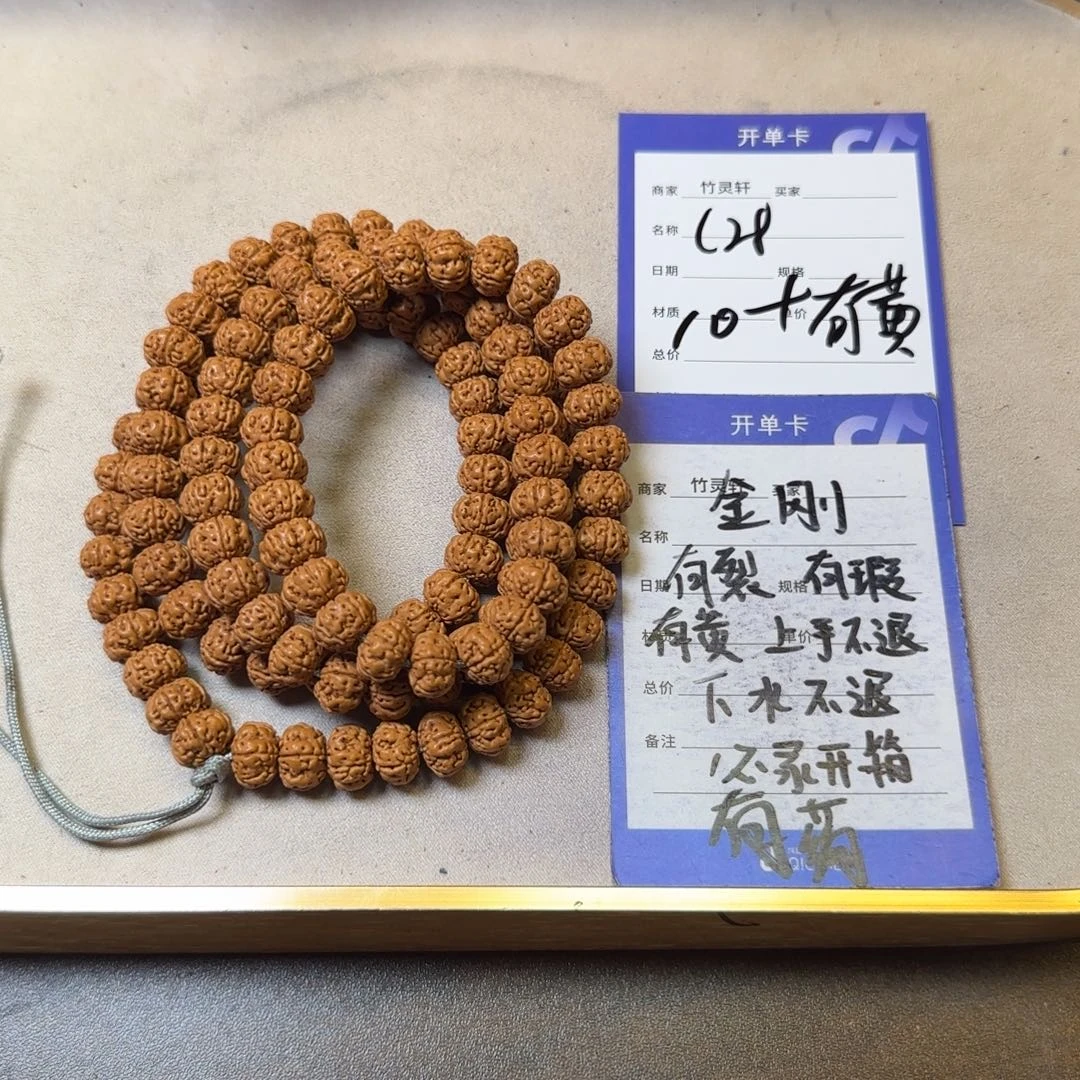 开单卡
商家 竹灵轩 买家
名称 128
日期 规格
材质 单价
10+有黄
总价
开单卡
商家 竹灵轩 买家
金刚
名称
日期 规格
有裂 有瑕
材质 单价
有黄 上手不退
总价
下水不退
备注
必录开箱
有药